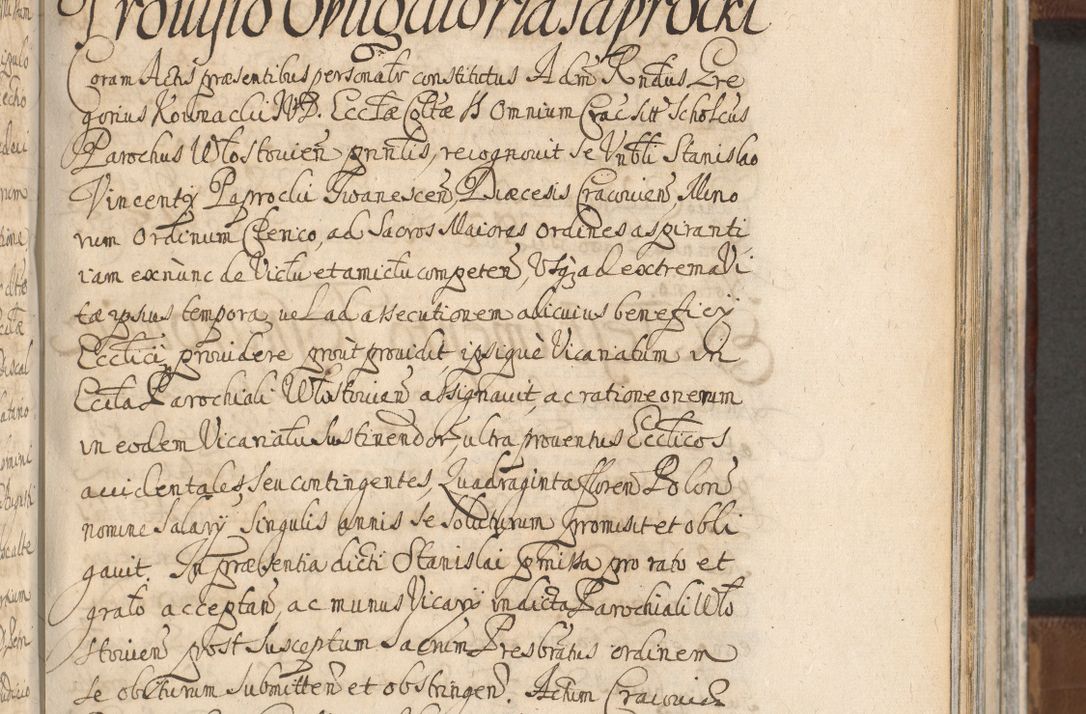 Provisio Obligatoria Paprocki
Coram Actis præsentibus personalr constitutus Adm Rndus Gre
gorius Kownacki IVD. Ecclæ Colltæ SS Omnium Crac scti Scholcus
Parochus Włostovien prntis, recognovit se Vnbli Stanislao
Vincenty Paprocki Iwanescen, Diæcesis Cracovien, Mino
rum Ordinum Clerico, ad Sacros Maiores Ordines aspiranti
iam ex nunc de Victu et amictu competen, Usq ad extrema Vi
tæ ipsius tempora vel ad assecutionem alicuius beneficij
Ecclici, providere prout providit ipsiquè Vicariatum in
Eccla Parochiali Włostovien assignavit, ac ratione onerum
in eodem Vicariatu sustinendor, ultra proventus Ecclicos
accidentales, seu contingentes, Quadraginta floren Polon
nomine Salarij, singulis annis se soluturum promisit et obli
gavit. In præsentia dicti Stanislai præmissa pro rato et
grato acceptan, ac munus Vicarij in dicta Parochiali Wło
stovien post susceptum Sacrum Presbratus ordinem
se obiturum submitten et obstringen. Actum Cracoviæ